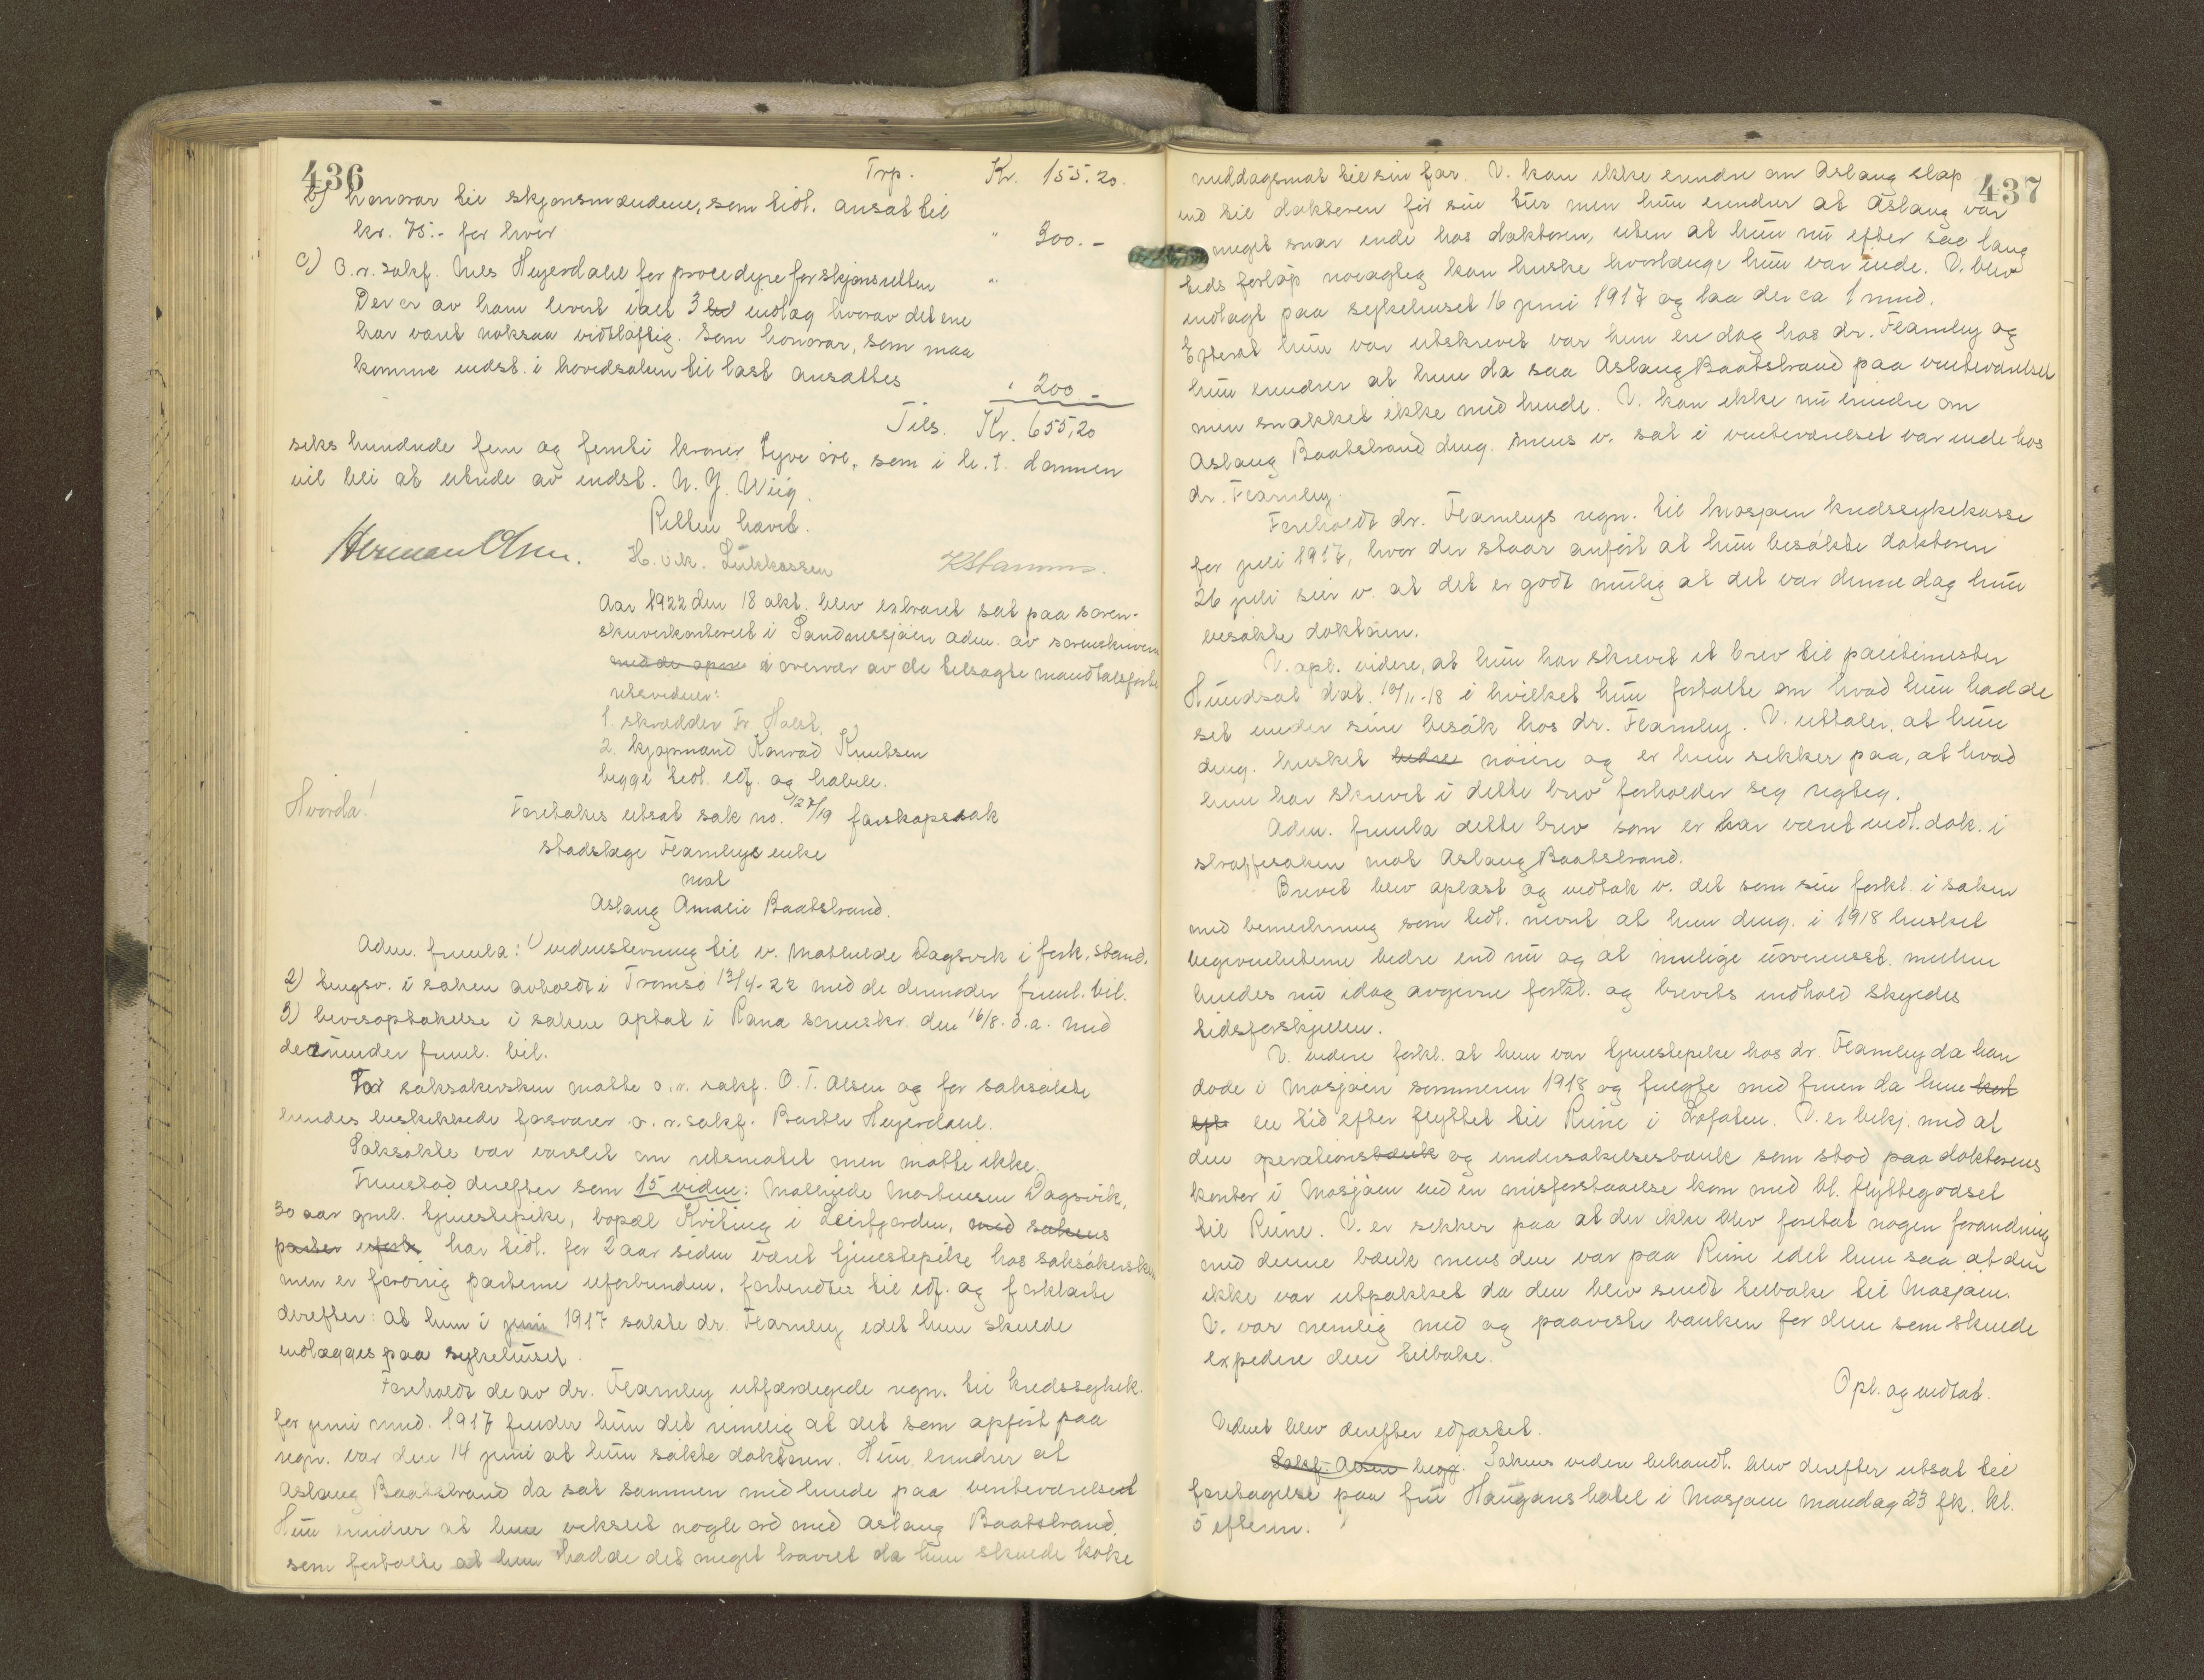 436
Trp. Kr. 155.20.
b) honorar til skjønsmændene, som tidl. ansat til
kr. 75.- for hver " 300.-
c) O.r.sakf. Nils Heyerdahl for procedyre for skjønsretten "
Der er av ham levert ialt 3 indlæg hvorav det ene
har været noksaa vidtløftig. Som honorar, som maa
komme indst. i hovedsaken til last ansættes " 200.-
Tils. Kr. 655,20
seks hundrede fem og femti kroner tyve øre, som i h.t. dommen
vil bli at utrede av indst. N. J. Wiig.
Retten hævet.
Herman Olsen. H. vik. Lukkassen KHamms.
Aar 1922 den 18 okt. blev extraret sat paa soren-
skriverkontoret i Sandnessjøen adm. av sorenskriveren
med de opn i overvær av de tilsagte mandtalsførte
retsvidner:
1. skrædder Fr. Holst,
2. kjøpmand Konrad Knutsen
begge tidl. edf. og habile.
Hvorda!
Foretokes utsat sak no. 127/19 farskapssak
stadslæge Fearnleys enke
mot
Aslaug Amalie Baatstrand.
Adm. fremla: 1) vidnestevning til v. Mathilde Dagsvik i fork. stand.
2) tingsv. i saken avholdt i Tromsø 13/4-22 med de derunder freml. bil.
3) bevisoptakelse i saken optat i Rana sorenskr. den 16/8. d.a. med
derunder freml. bil.
For saksøkersken møtte o.r.sakf. O. T. Olsen og for saksøkte
hendes beskikkede forsvarer o.r.sakf. Barthe Heyerdahl.
Saksøkte var varslet om retsmøtet men møtte ikke.
Fremstod derefter som 15 vidne: Mathilde Martinsen Dagsvik,
30 aar gml. tjenestepike, bopæl Kviting i Leirfjorden, med sakens
parter uforb. har tidl. for 2 aar siden været tjenestepike hos saksøkersken
men er forøvrig parterne uforbunden, forberedtes til edf. og forklarte
derefter: at hun i juni 1917 søkte dr. Fearnley idet hun skulde
indlægges paa sykehuset.
Foreholdt de av dr. Fearnley utfærdigede regn. til kredssykek.
for juni mnd. 1917 finder hun det rimelig at det som opført paa
regn. var den 14 juni at hun søkte doktoren. Hun erindrer at
Aslaug Baatstrand da sat sammen med hende paa venteværelset
Hun erindrer at hun vekslet nogle ord med Aslaug Baatstrand,
som fortalte at hun hadde det meget travelt da hun skulde koke
437
middagsmat til sin far. V. kan ikke erindre om Aslaug slap
ind til doktoren før sin tur men hun erindrer at Aslaug var
meget snar inde hos doktoren, uten at hun nu efter saa lang
tids forløp nøiagtig kan huske hvorlænge hun var inde. V. blev
indlagt paa sykehuset 16 juni 1917 og laa der ca 1 mnd.
Efterat hun var utskrevet var hun en dag hos dr. Fearnley og
hun erindrer at hun da saa Aslaug Baatstrand paa venteværelset
men snakket ikke med hende. V. kan ikke nu erindre om
Aslaug Baatstrand dengg. mens v. sat i venteværelset var inde hos
dr. Fearnley.
Foreholdt dr. Fearnleys regn. til Mosjøen kredssykekasse
for juli 1917, hvor der staar anført at hun besøkte doktoren
26 juli sier v. at det er godt mulig at det var denne dag hun
besøkte doktoren.
V. opl. videre, at hun har skrevet et brev til politimester
Hundsal dat. 19/11-18 i hvilket hun fortalte om hvad hun hadde
set under sine besøk hos dr. Fearnley. V. uttaler, at hun
dengg. husket bedre nøiere og er hun sikker paa, at hvad
hun har skrevet i dette brev forholder seg rigtig.
Adm. fremla dette brev som er har været vedl. dok. i
straffesaken mot Aslaug Baatstrand.
Brevet blev oplæst og vedtok v. det som sin forkl. i saken
med bemerkning som tidl. nævnt at hun dengg. i 1918 husket
begivenheterne bedre end nu og at mulige uoverensst. mellem
hendes nu idag avgivne forkl. og brevets indhold skyldes
tidsforskjellen.
V. videre forkl. at hun var tjenestepike hos dr. Fearnley da han
døde i Mosjøen sommeren 1918 og fulgte med fruen da hun kort
eft en tid efter flyttet til Reine i Lofoten. V. er bekj. med at
den operationsbænk og undersøkelsesbænk som stod paa doktorens
kontor i Mosjøen ved en misforstaaelse kom med bl. flyttegodset
til Reine. V. er sikker paa at der ikke blev foretat nogen forandring
med denne bænk mens den var paa Reine idet hun saa at den
ikke var utpakket da den blev sendt tilbake til Mosjøen.
V. var nemlig med og paaviste bænken for den som skulde
expedere den tilbake.
Opl. og vedtat.
Vidnet blev derefter edfæstet.
Sakf. Olsen begj. Sakens videre behandl. blev derefter utsat til
foretagelse paa fru Haugans hotel i Mosjøen mandag 23 fk. kl.
5 efterm.